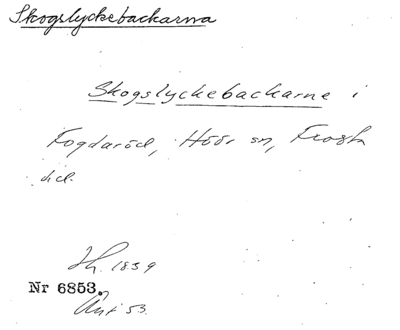 Skogslyckebackarna
Skogslyckebackarne i
Fogdaröd, Höör sn, Frosta
hd.
Sk. 1859
Nr 6853.
Akt 53.